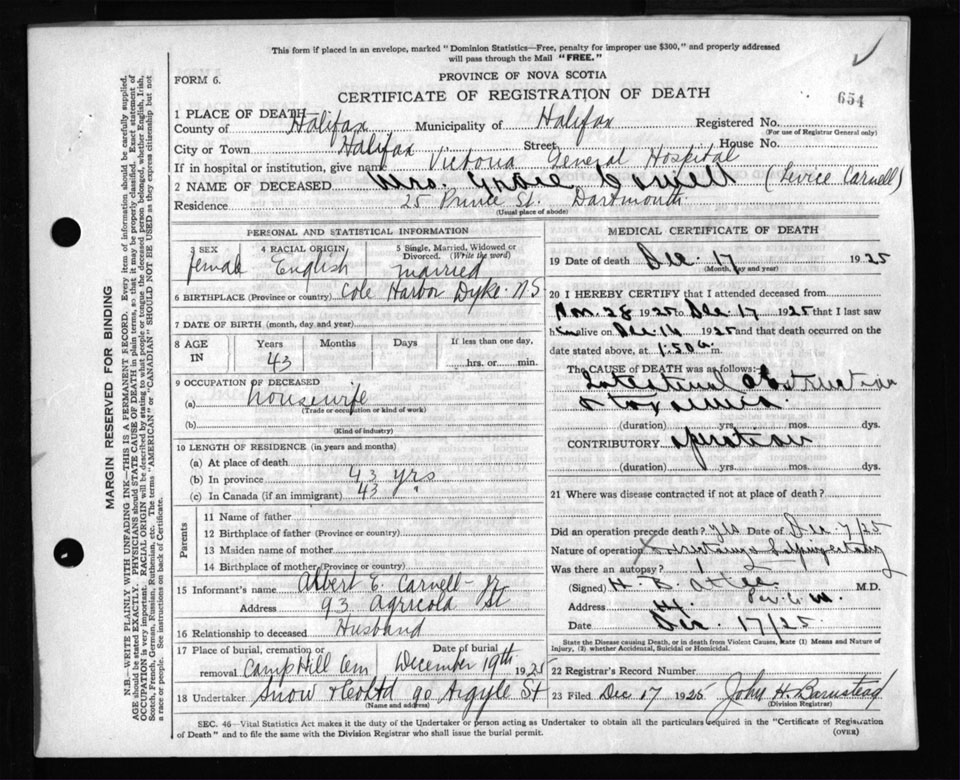 This form if placed in an envelope, marked "Dominion Statistics—Free, penalty for improper use $300," and properly addressed
will pass through the Mail "FREE."
FORM 6.
PROVINCE OF NOVA SCOTIA
CERTIFICATE OF REGISTRATION OF DEATH
654
1 PLACE OF DEATH
County of Halifax Municipality of Halifax Registered No.
(For use of Registrar General only)
City or Town Halifax Street House No.
If in hospital or institution, give name Victoria General Hospital
2 NAME OF DECEASED Mrs. Grace Carnell (Levice Carnell)
Residence 25 Prince St. Dartmouth
(Usual place of abode)
PERSONAL AND STATISTICAL INFORMATION
3 SEX 4 RACIAL ORIGIN 5 Single, Married, Widowed or
Divorced. (Write the word)
female English married
6 BIRTHPLACE (Province or country) Cole Harbor Dyke NS
7 DATE OF BIRTH (month, day and year)
8 AGE IN Years Months Days If less than one day,
43 hrs. or min.
9 OCCUPATION OF DECEASED
(a) housewife
(Trade or occupation or kind of work)
(b)
(Kind of industry)
10 LENGTH OF RESIDENCE (in years and months)
(a) At place of death
(b) In province 43 yrs
(c) In Canada (if an immigrant) 43 "
Parents
11 Name of father
12 Birthplace of father (Province or country)
13 Maiden name of mother
14 Birthplace of mother (Province or country)
15 Informant's name Albert E. Carnell Jr
Address 93 Agricola St
16 Relationship to deceased Husband
17 Place of burial, cremation or Date of burial
removal Camp Hill Cem December 19th 1925
18 Undertaker Snow & Co Ltd 90 Argyle St
(Name and address)
MEDICAL CERTIFICATE OF DEATH
19 Date of death Dec. 17 1925
(Month, day and year)
20 I HEREBY CERTIFY that I attended deceased from
Nov. 28 1925 to Dec 17 1925 that I last saw
h alive on Dec 16 1925 and that death occurred on
date stated above, at 1.50 a m.
The CAUSE OF DEATH was as follows:
Intestinal obstruction
& toxaemia.
(duration) yrs. mos. dys.
CONTRIBUTORY operation
(duration) yrs. mos. dys.
21 Where was disease contracted if not at place of death?
Did an operation precede death? yes Date of Dec 7/25
Nature of operation
Was there an autopsy?
(Signed) H. B. Atlee M.D.
Address
Date Dec 17/25
State the Disease causing Death, or in death from Violent Causes, state (1) Means and Nature of
Injury, (2) whether Accidental, Suicidal or Homicidal.
22 Registrar's Record Number
23 Filed Dec 17 1925 John H. Barnstead
(Division Registrar)
SEC. 46—Vital Statistics Act makes it the duty of the Undertaker or person acting as Undertaker to obtain all the particulars required in the "Certificate of Registration
of Death" and to file the same with the Division Registrar who shall issue the burial permit.
(OVER)
MARGIN RESERVED FOR BINDING
N.B.—WRITE PLAINLY WITH UNFADING INK—THIS IS A PERMANENT RECORD. Every item of information should be carefully supplied.
AGE should be stated EXACTLY. PHYSICIANS should STATE CAUSE OF DEATH in plain terms, so that it may be properly classified. Exact statement of
OCCUPATION is very important. RACIAL ORIGIN will be described by stating to what people or tongue the deceased person belonged, whether English, Irish,
Scotch, French, German, Russian, Ruthenian, etc. The terms "AMERICAN" or "CANADIAN" SHOULD NOT BE USED as they express citizenship but not
a race or people. See instructions on back of Certificate.